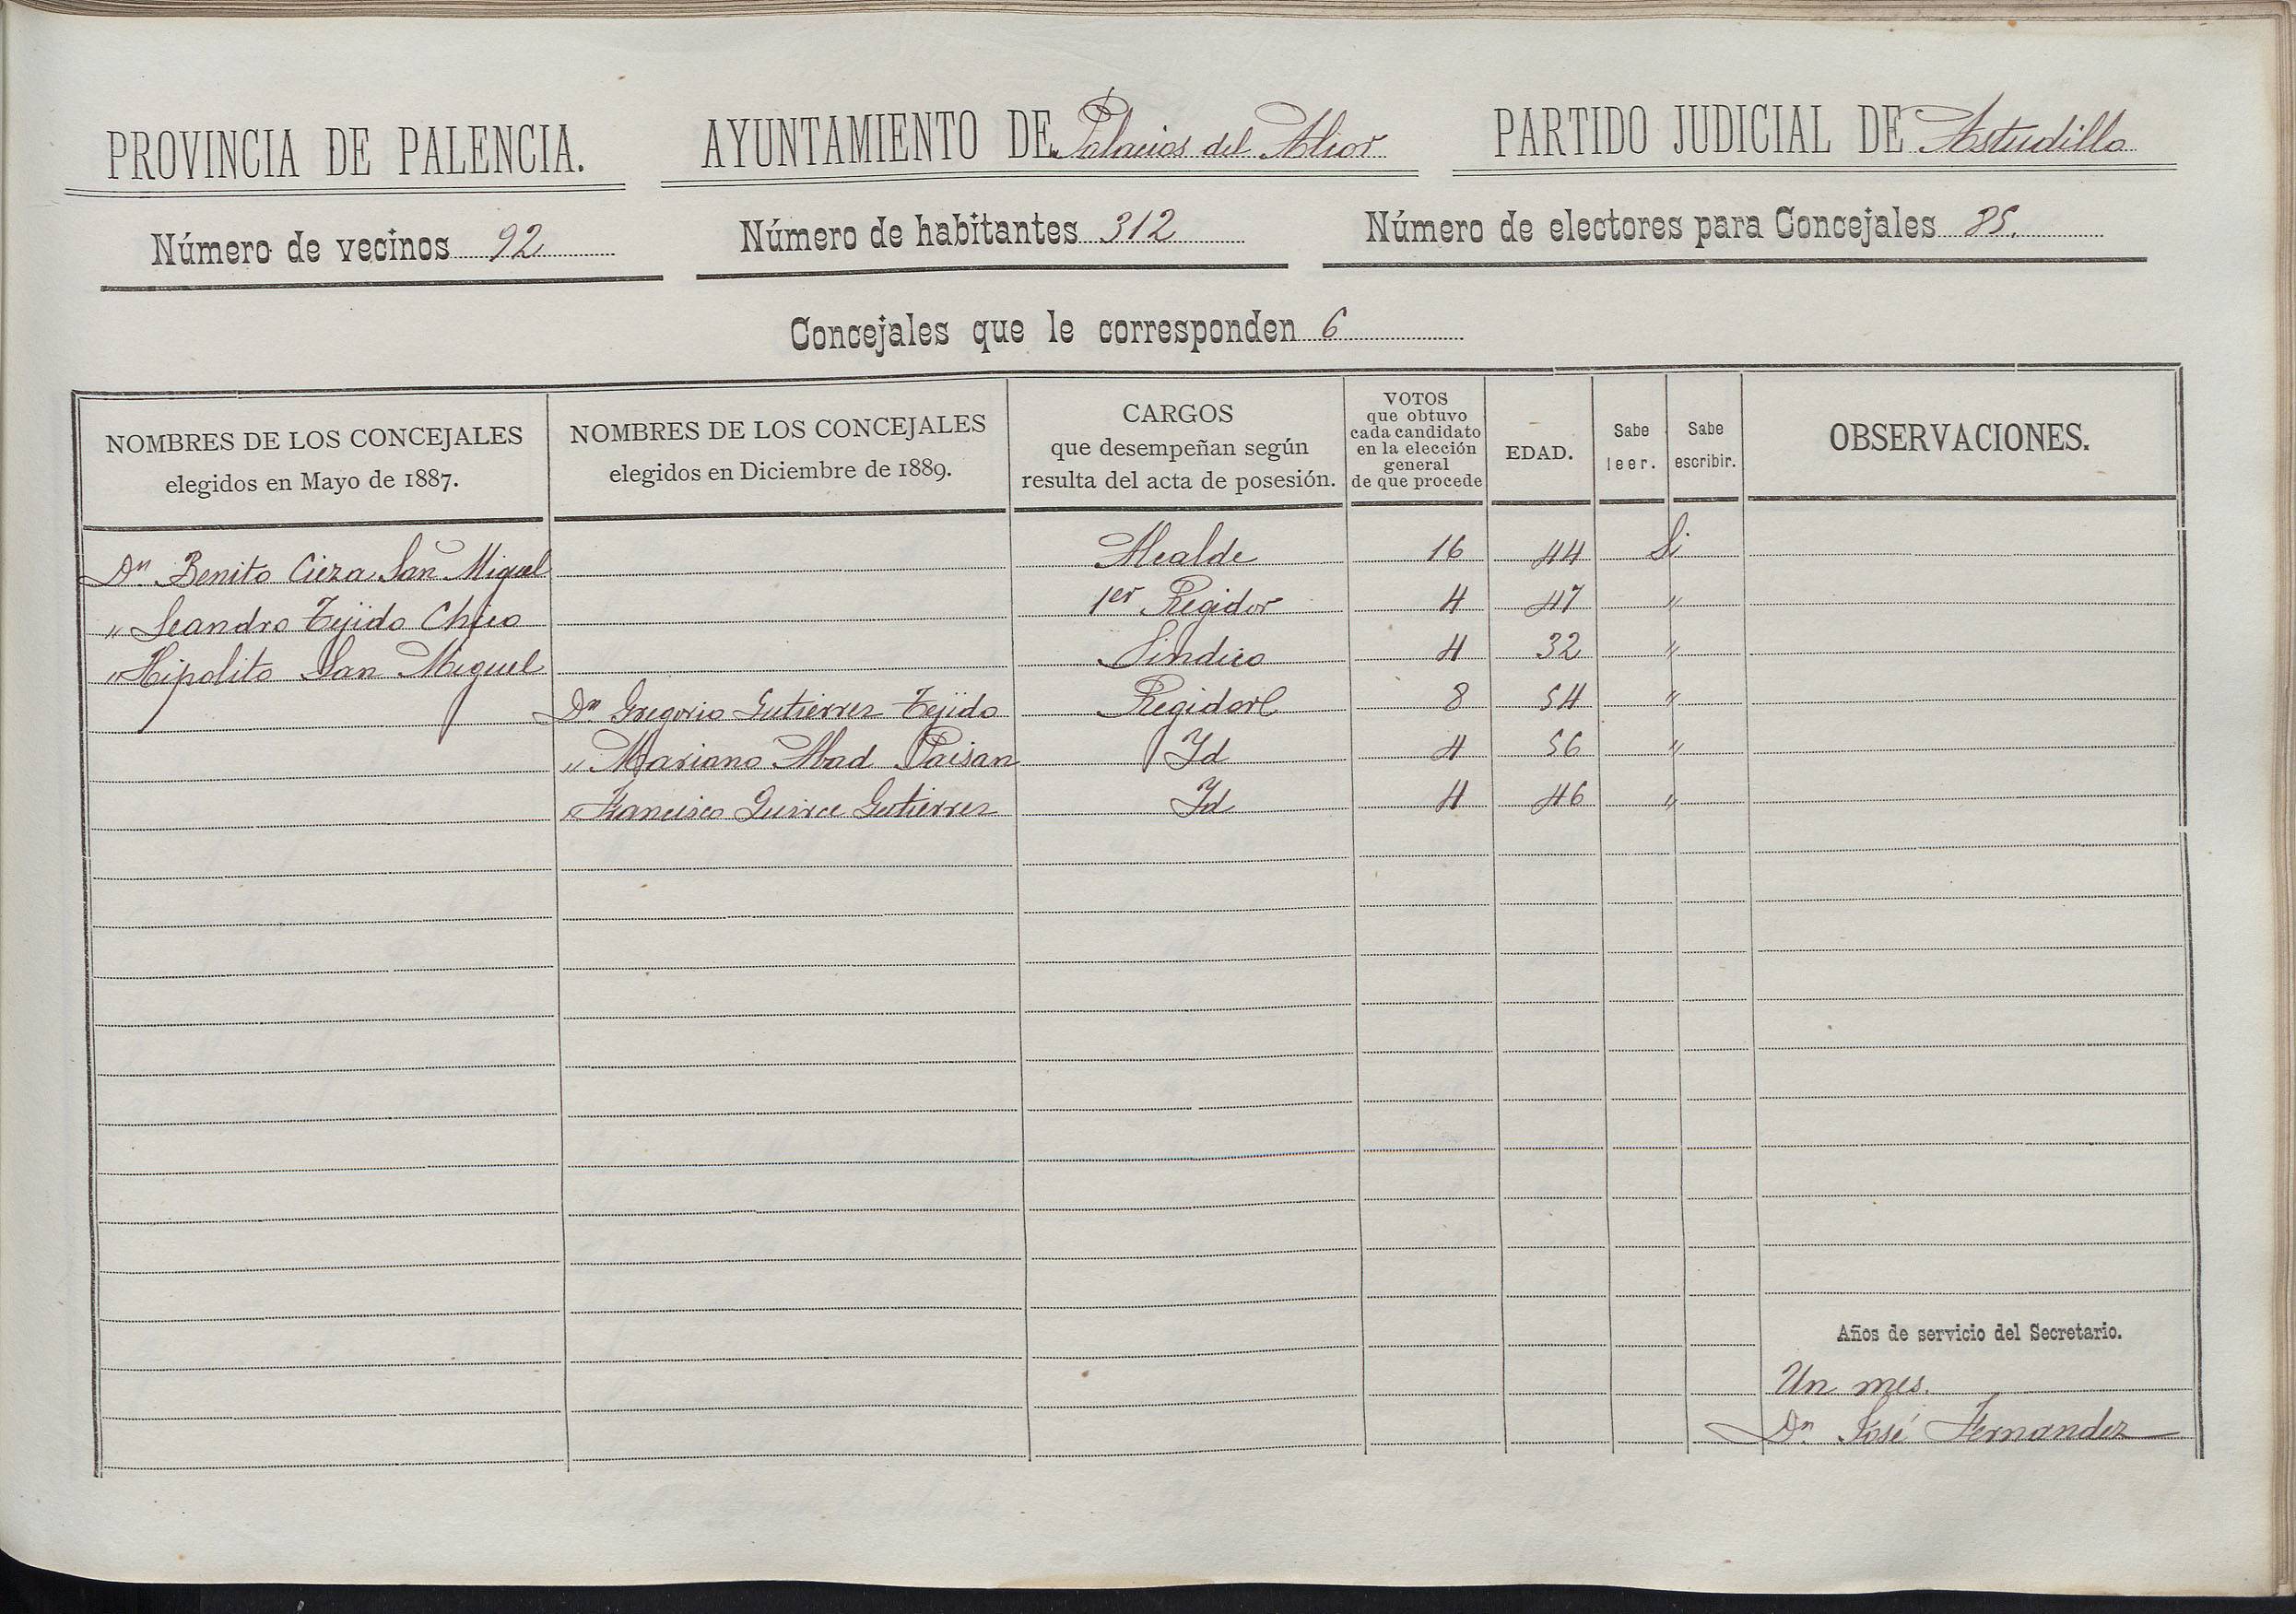 PROVINCIA DE PALENCIA. AYUNTAMIENTO DE Palacios del Alcor PARTIDO JUDICIAL DE Astudillo
Número de vecinos 92 Número de habitantes 312 Número de electores para Concejales 85.
Concejales que le corresponden 6
NOMBRES DE LOS CONCEJALES elegidos en Mayo de 1887. NOMBRES DE LOS CONCEJALES elegidos en Diciembre de 1889. CARGOS que desempeñan según resulta del acta de posesión. VOTOS que obtuvo cada candidato en la elección general de que procede EDAD. Sabe leer. Sabe escribir. OBSERVACIONES.
Dn Benito Cieza San Miguel Alcalde 16 44 Si
" Leandro Tejido Chico 1er Regidor 4 47 "
" Hipolito San Miguel Sindico 4 32 "
Dn Gregorio Gutierrez Tejido Regidor 8 54 "
" Mariano Abad Paisan Id 4 56 "
" Francisco Quirce Gutierrez Id 4 46 "
Años de servicio del Secretario.
Un mes.
Dn José Fernandez